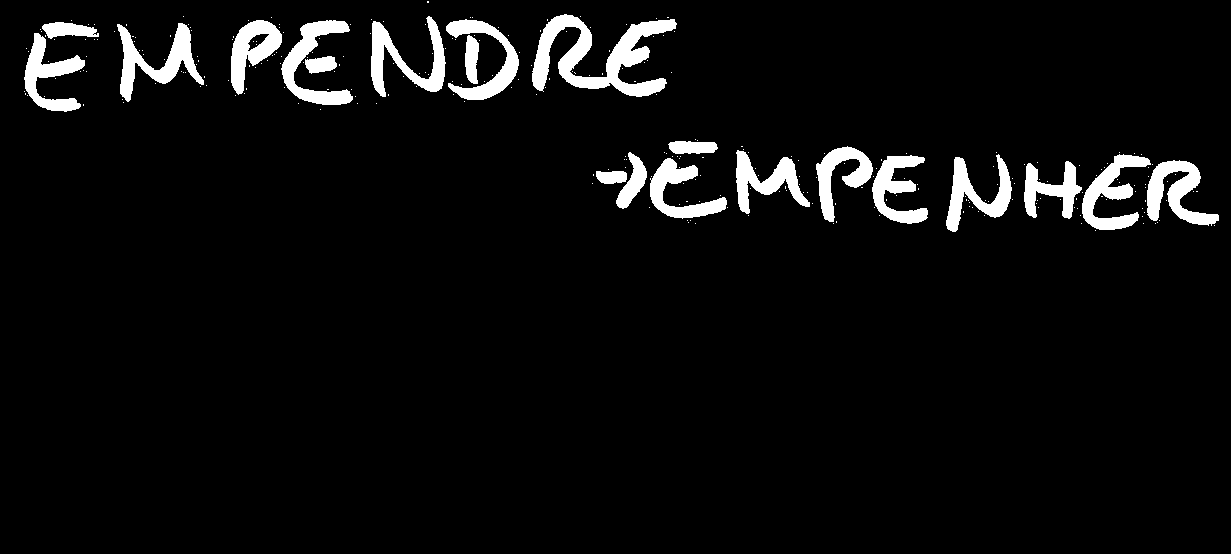 EMPENDRE
→EMPENHER